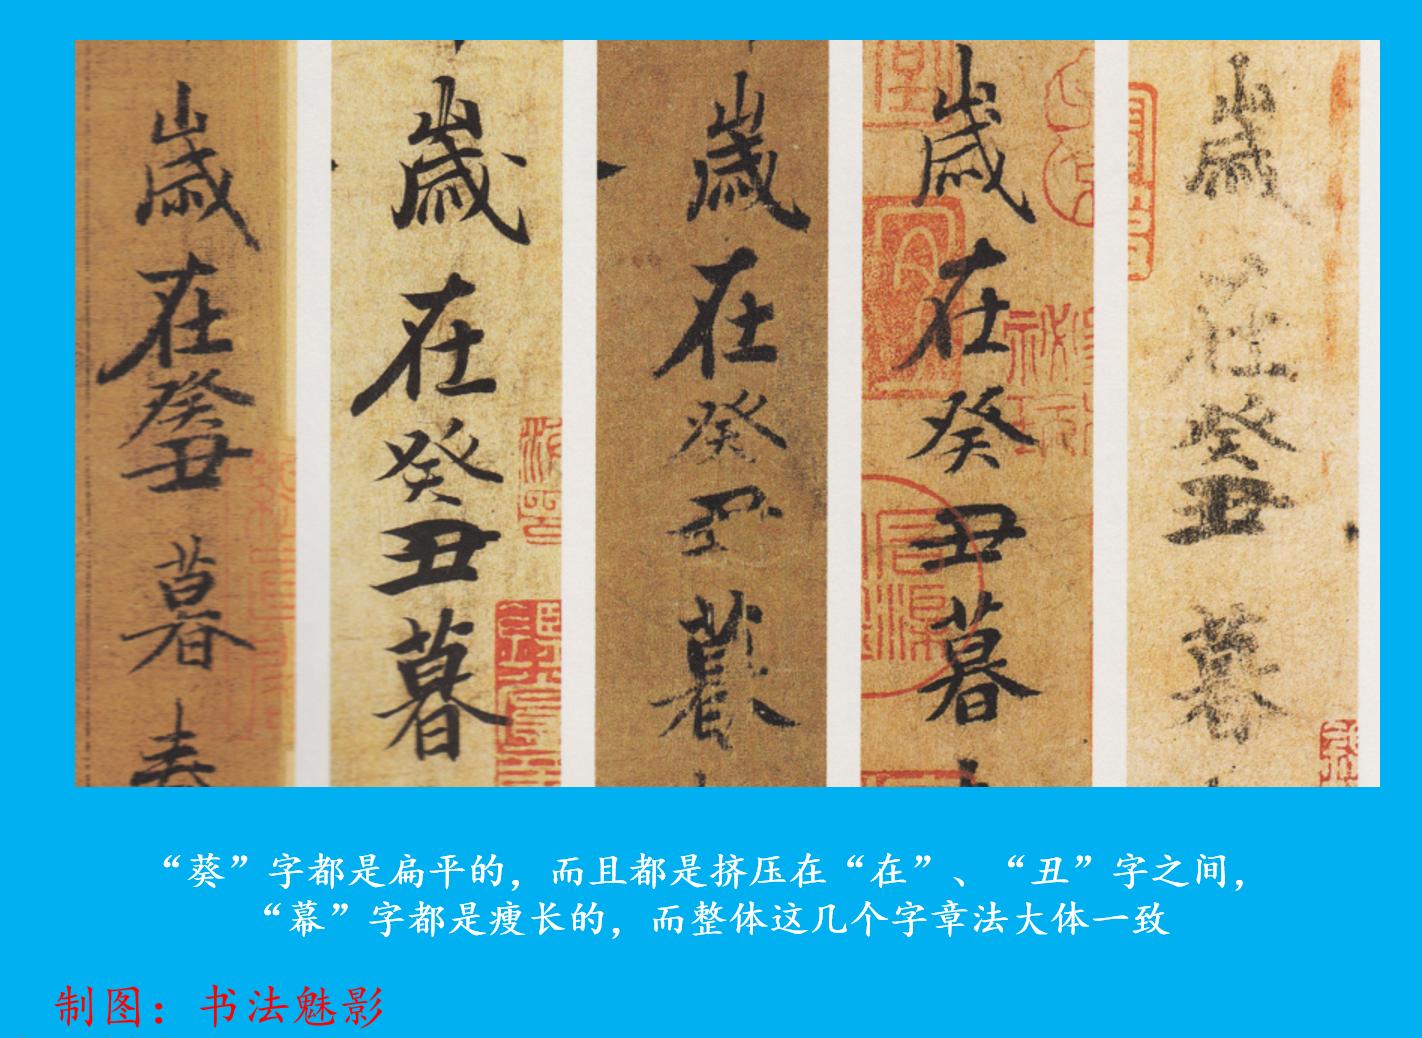 歲在癸丑暮春
歲在癸丑暮
歲在癸丑暮
歲在癸丑暮
歲在癸丑暮
“葵”字都是扁平的，而且都是挤压在“在”、“丑”字之间，
“幕”字都是瘦长的，而整体这几个字章法大体一致
制图：书法魅影